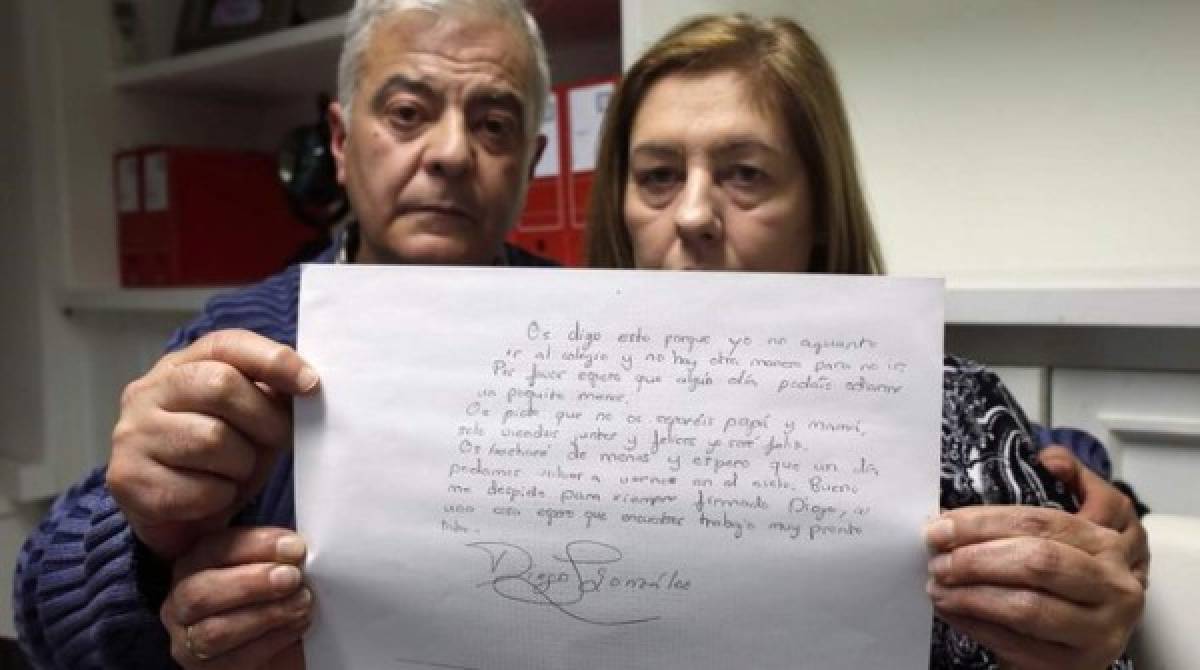 Os digo esto porque yo no aguanto
ir al colegio y no hay otra manera para no ir
Por favor espero que algún día podáis odiarme
un poquito menos.
Os pido que no os separéis papá y mamá,
solo viendoos juntos y felices yo seré feliz.
Os echaré de menos y espero que un día
podamos volver a vernos en el cielo. Bueno
me despido para siempre firmado Diego, a
una cosa espero que encuentres trabajo muy pronto
Tata.
Diego González